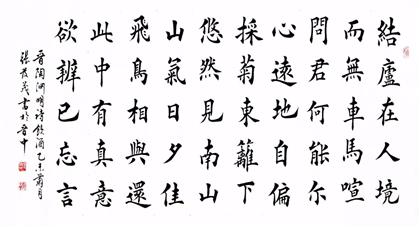 結廬在人境
而無車馬喧
問君何能尔
心遠地自偏
採菊東籬下
悠然見南山
山氣日夕佳
飛鳥相與還
此中有真意
欲辨已忘言
晉陶渊明詩飲酒乙未月
張茂書於晉中